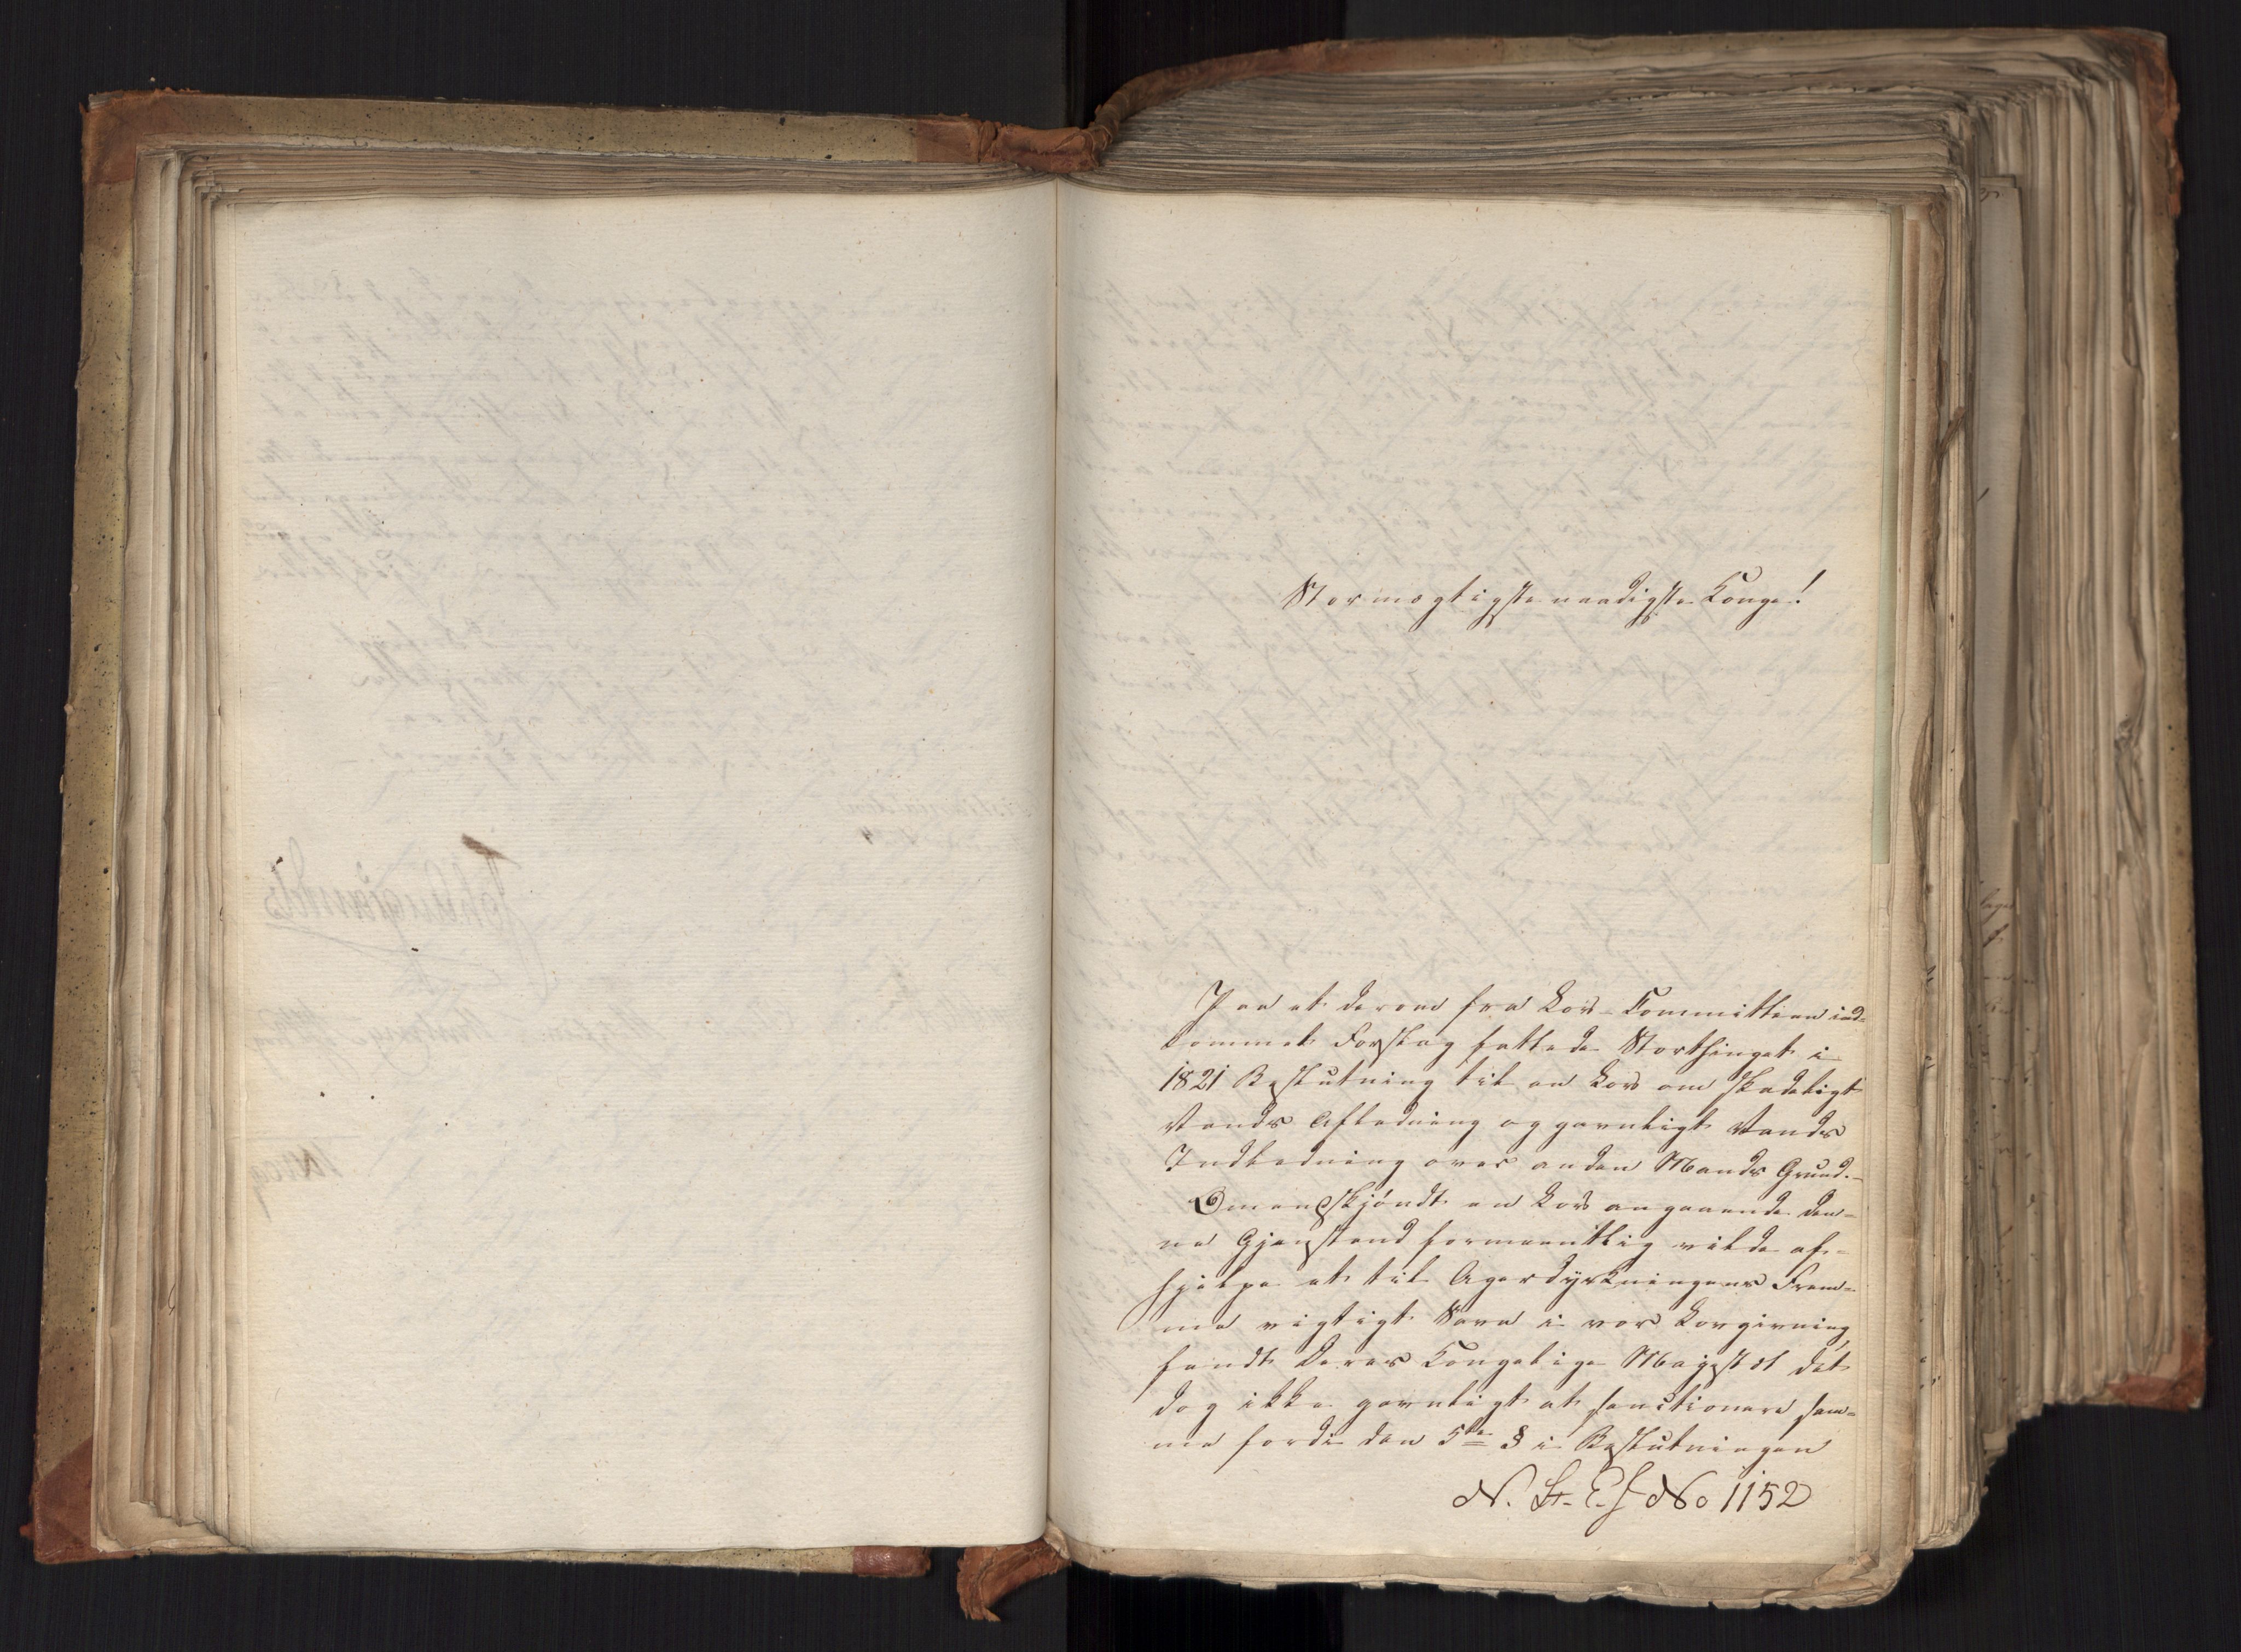 Stormægtigste naadigste Konge!
Paa et derom fra Lov-Committeen ind-
kommet Forslag fattede Storthinget i
1821 Beslutning til en Lov om skadeligt
Vands Afledning og gavnligt Vands
Indledning over anden Mands Grund.-
Omenskjöndt en Lov angaaende den-
ne Gjenstand formeentlig vilde af-
hjelpe et til Agerdyrkningens Frem-
me vigtigt Savn i vor Lovgivning,
fandt Deres Kongelige Majestæt det
dog ikke gavnligt at sanctionere sam-
me fordi den 5te § i Beslutningen
N. St. E. J No 1152